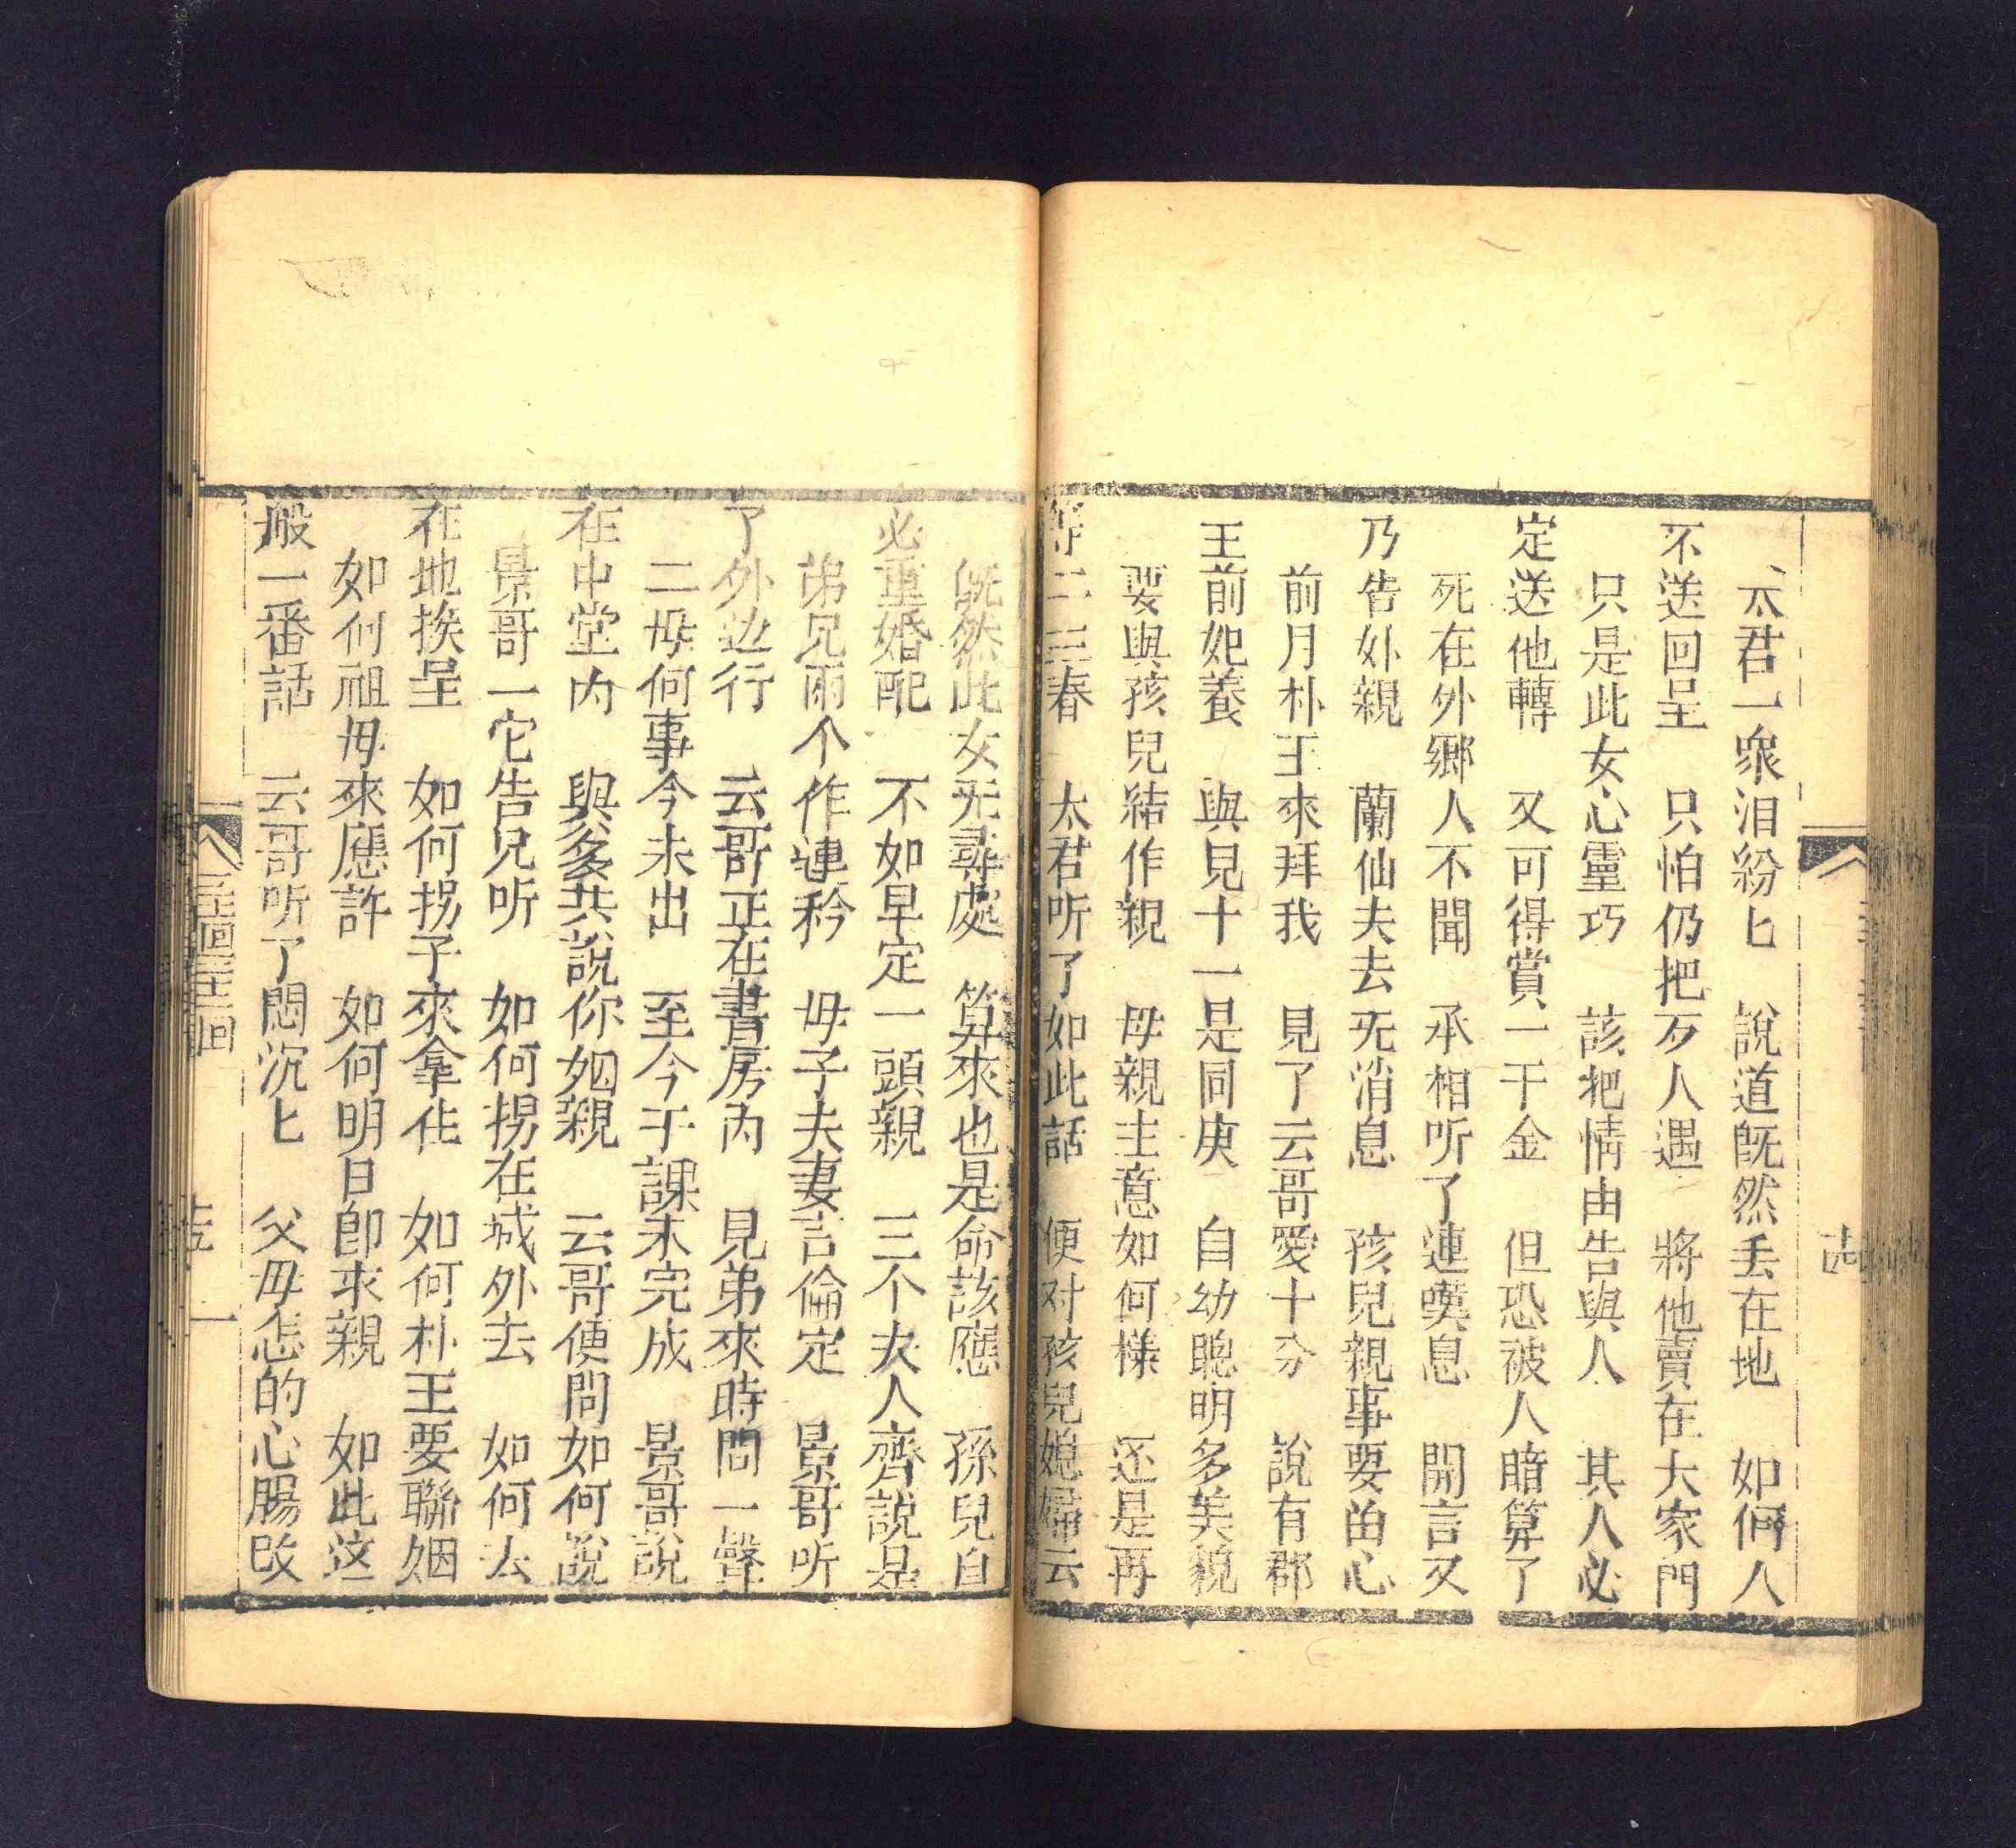 太君一衆泪紛匕　說道旣然丢在地　如何人
不送回呈　只怕仍把歹人遇　將他賣在大家門
只是此女心靈巧　該把情由告與人　其人必
定送他轉　又可得賞一千金　但恐被人暗算了
死在外鄉人不聞　承相听了連嘆息　開言又
乃告外親　蘭仙夫去旡消息　孩兒親事要留心
前月朴王來拜我　見了云哥愛十分　說有郡
王前妃養　與兒十一是同庚　自幼聰明多美貌
要與孩兒結作親　母親主意如何樣　还是再
等二三春　太君听了如此話　便对孩兒媳婦云
旣然此女旡尋處　算來也是命該應　孫兒自
必重婚配　不如早定一頭親　三个夫人齊說是
弟兄兩个作連矜　母子夫妻言倫定　景哥听
了外边行　云哥正在書房內　見弟來時問一聲
二母何事今未出　至今千課未完成　景哥說
在中堂內　與爹共說你姻親　云哥便問如何說
景哥一它告兒听　如何拐在城外去　如何去
在地挨呈　如何拐子來拿住　如何朴王要聯姻
如何祖母來應許　如何明日卽求親　如此这
般一番話　云哥听了悶沉匕　父母怎的心腸改